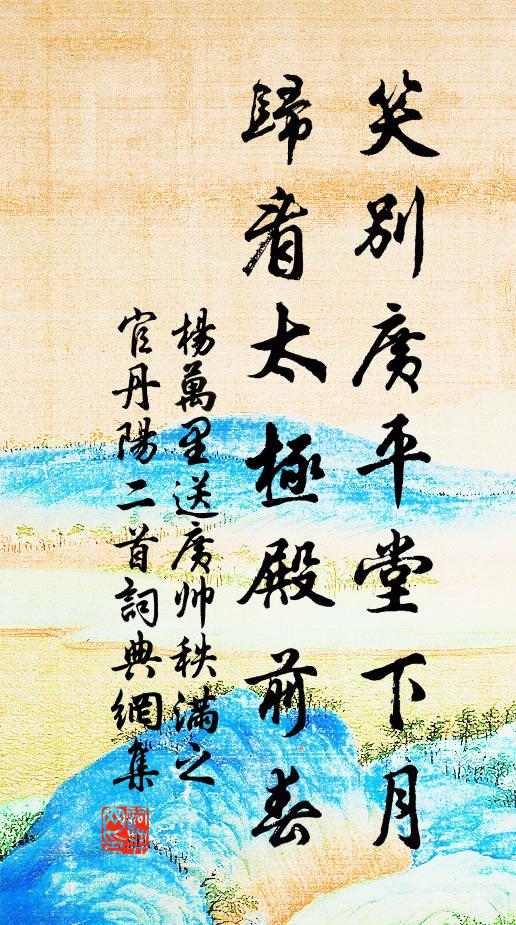 笑別廣平堂下月
歸看太極殿前春
楊萬里送廣帅秩滿之
官丹陽二首詞典網集